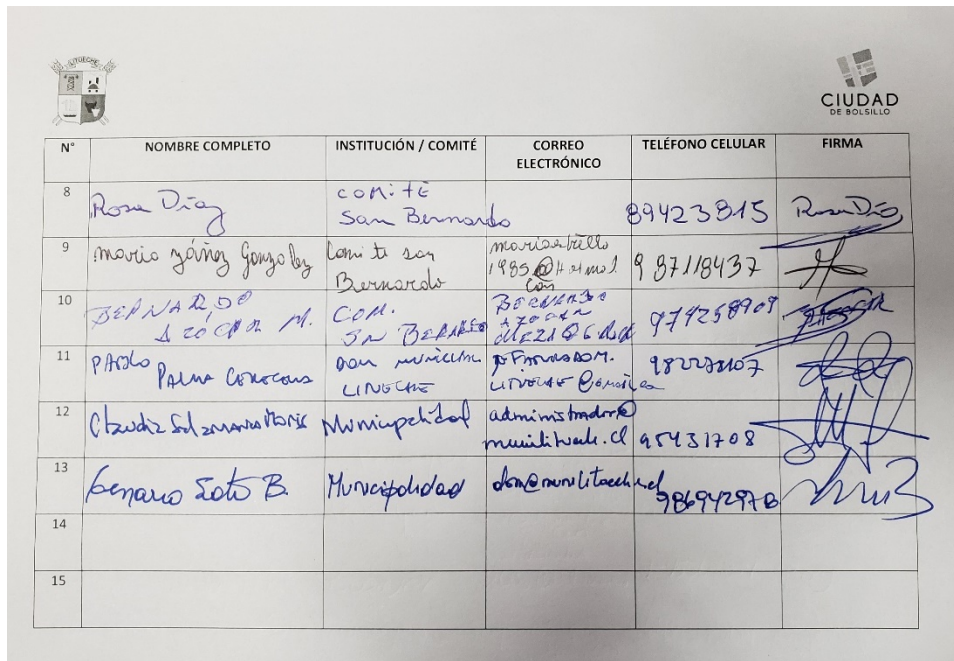 LITUECHE
CIUDAD
DE BOLSILLO
N° NOMBRE COMPLETO INSTITUCIÓN / COMITÉ CORREO ELECTRÓNICO TELÉFONO CELULAR FIRMA
8 Rosa Díaz Comité San Bernardo 89423815 Rosa Díaz
9 Mario Yáñez Gonzalez Comite san Bernardo 987118437
10 BERNARDO AZOCAR M. COM. SN BERNARDO 974258909
11 PABLO PALMA DOM MUNICIPAL LITUECHE
12 Claudia Salamanca Moris Municipalidad administrador@munilitueche.cl 95431708
13 Genaro Soto B. Municipalidad dom@munilitueche.cl
14
15